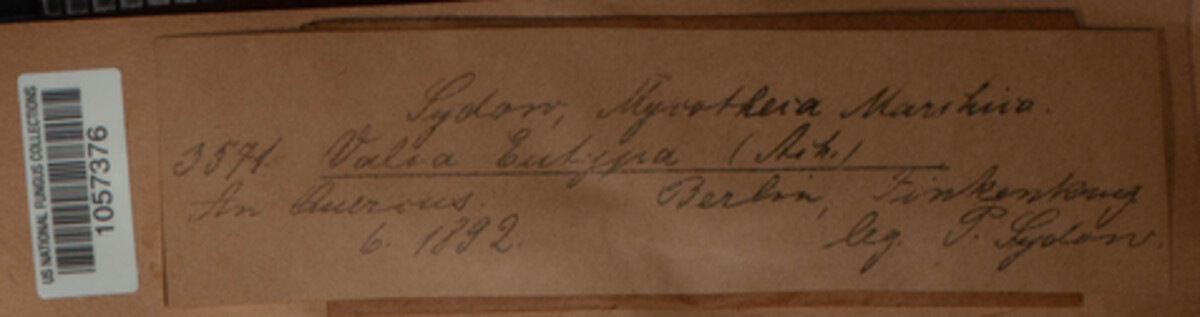 US NATIONAL FUNGUS COLLECTIONS
1057376
Sydow, Mycotheca Marchica.
3571. Valsa Eutypa (Ach.)
An Quercus. Berlin, Finkenkrug
6. 1892. leg. P. Sydow.